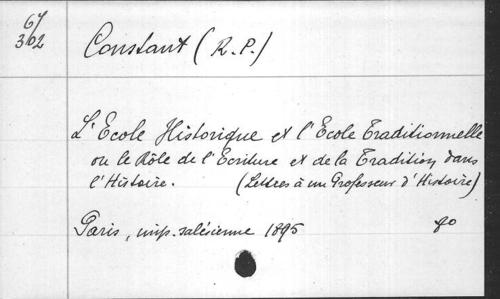 67
302
Constant (R.P.)
L'Ecole Historique et l'Ecole Traditionnelle
ou le Rôle de l'Ecriture et de la Tradition dans
l'Histoire. (Lettres à un Professeur d'Histoire)
Paris, imp. salésienne 1895 8o